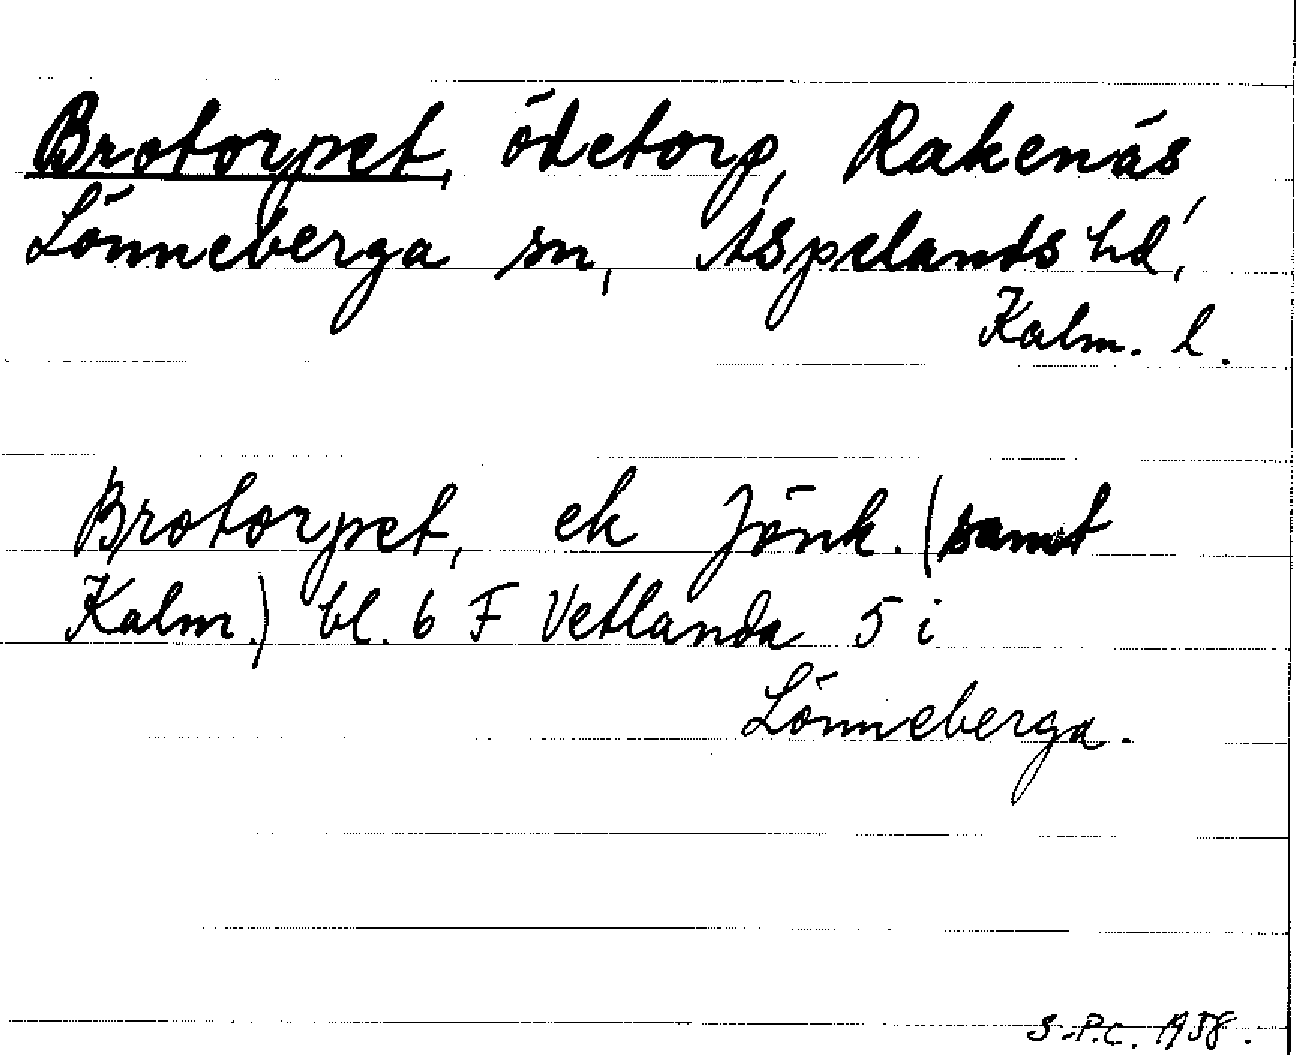 Brotorpet, ödetorp, Rakenäs,
Lönneberga sn, Aspelands hd,
Kalm. l.
Brotorpet, ek Jönk. (samt
Kalm.) bl. 6 F Vetlanda 5 i
Lönneberga.
S.P.C. 1958.